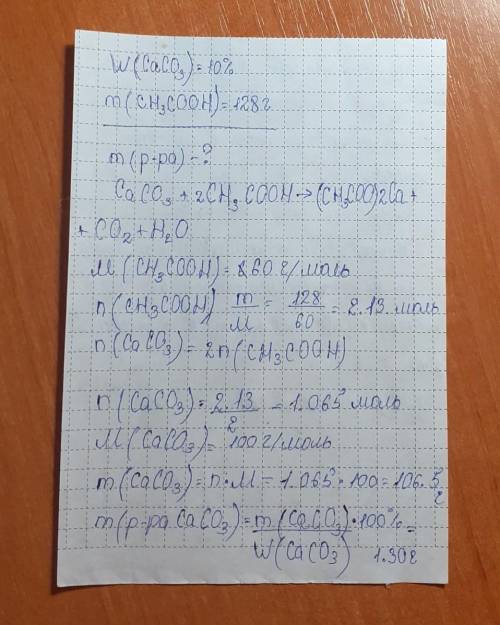 W(CaCO₃)=10%
m(CH₃COOH)=128г
m(р-ра)-?
CaCO₃+2CH₃COOH→(CH₃COO)2Ca+
+CO₂+H₂O
M(CH₃COOH)=60г/моль
n(CH₃COOH) m/M = 128/60 = 2.13. моль
n(CaCO₃)=2n(CH₃COOH)
n(CaCO₃)=2.13/2=1.065 моль
M(CaCO₃)=100г/моль
m(CaCO₃)=n·M=1.065·100=106.5г
m(р-ра CaCO₃)=m(CaCO₃)·100%/W(CaCO₃)=
1.30г